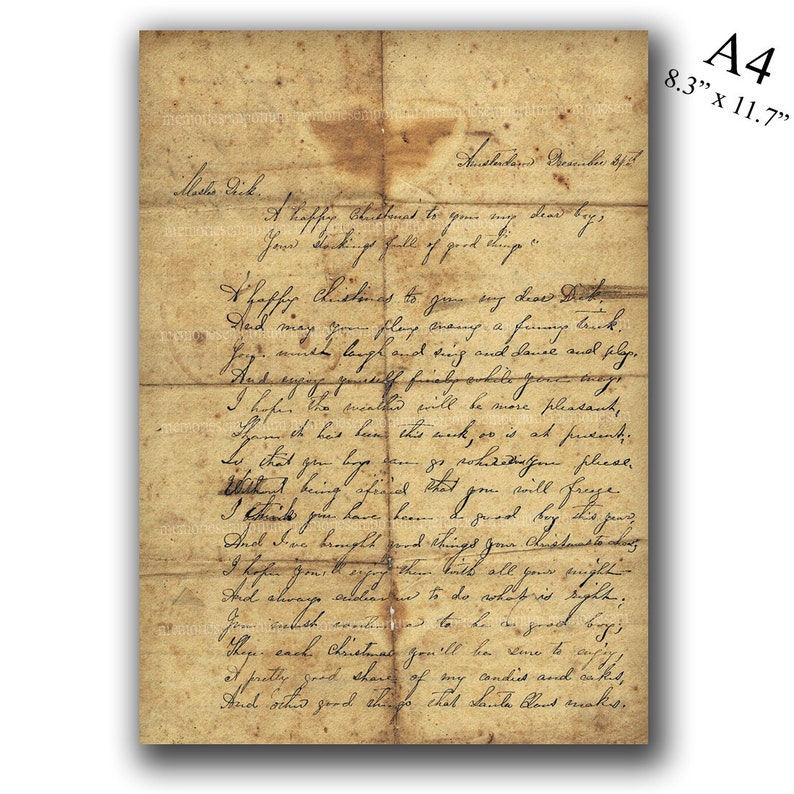 A4
8.3” x 11.7”
Amsterdam December 24th
Master Dick.
A happy Christmas to you my dear boy;
Your stockings full of good things"
A happy Christmas to you my dear Dick,
And may you play many a funny trick
You must laugh and sing and dance and play,
And enjoy yourself finely while you may,
I hope the weather will be more pleasant,
Than it has been this week, or is at present;
So that you boys can go where you please
Without being afraid that you will freeze
I think you have been a good boy this year,
And I've brought good things your Christmas to cheer,
I hope you'll enjoy them with all your might
And always endeavor to do what is right;
You must to be a good boy;
Then each Christmas you'll be sure to enjoy,
A pretty good share of my candies and cakes,
And other good things that Santa Claus makes.
memoriesemporium